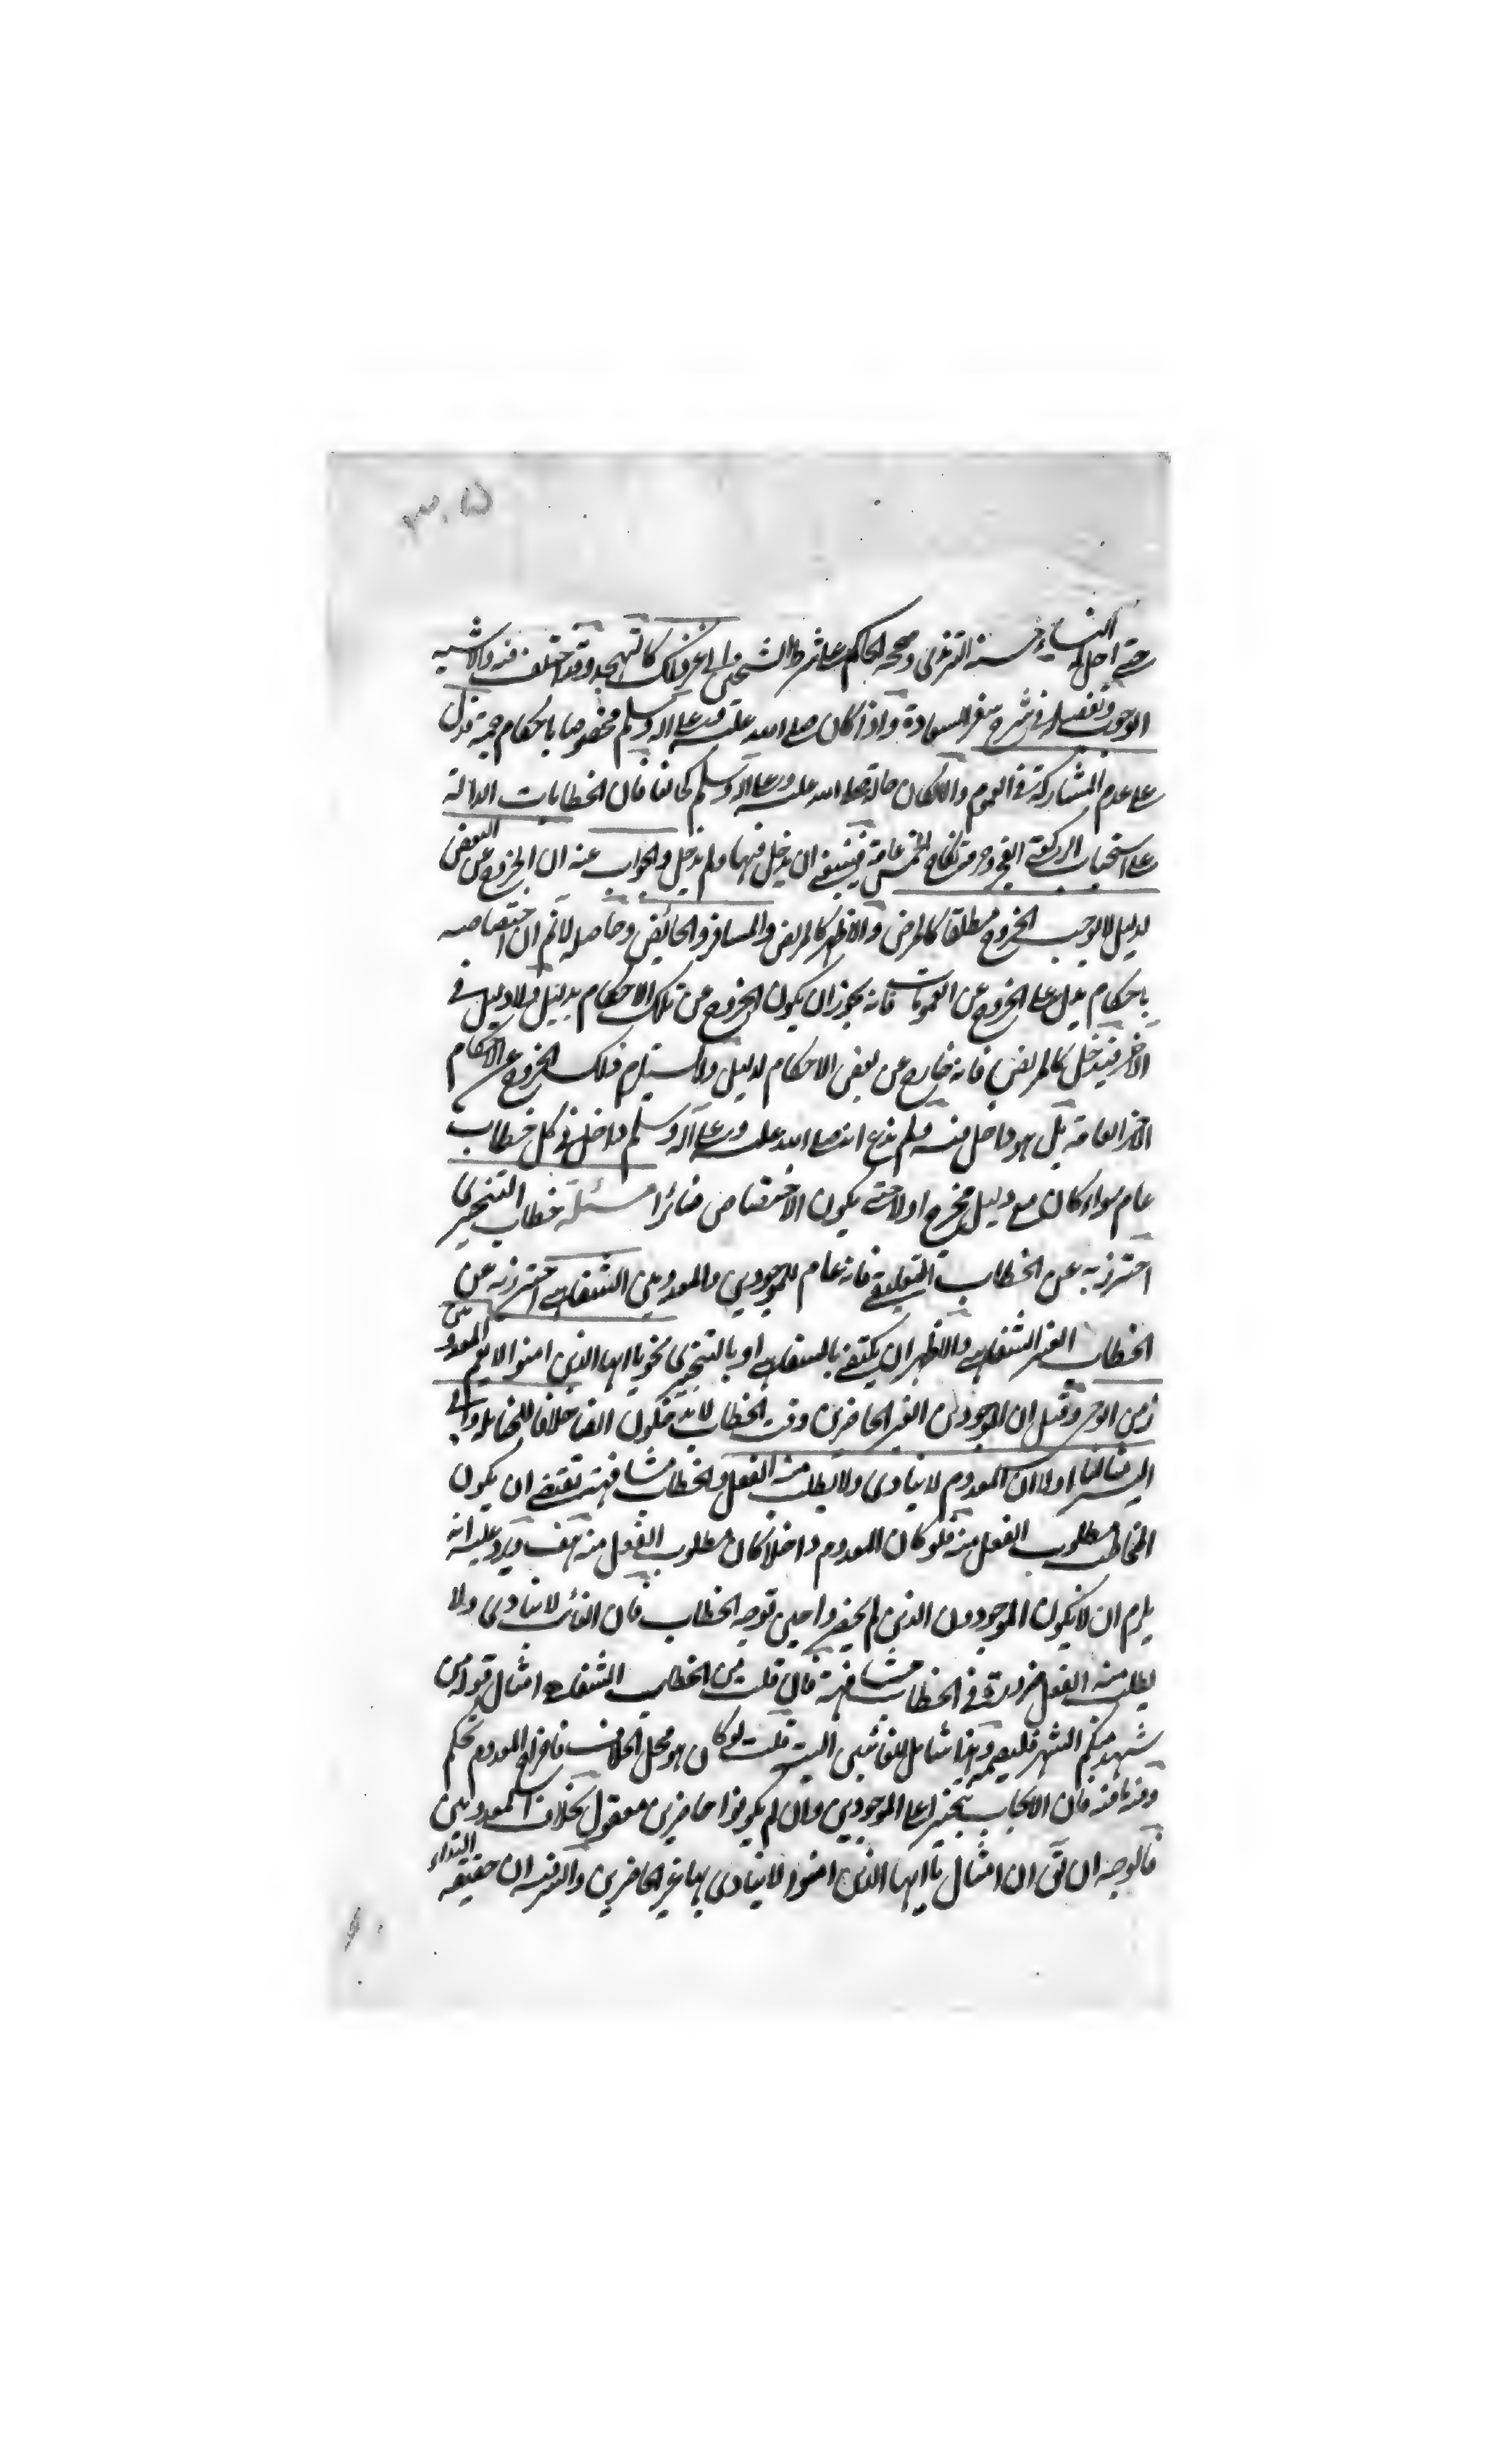 ٣٠٥
حتى احل له النساء حسنه الترمذى وصححه الحاكم على شرط الشيخين الى غير ذلك كالتهجد وقد اختلف فيه والاشبه
الوجوب وتفصيله فى شرح سفر السعادة واذا كان صلى الله عليه وعلى اله وسلم مخصوصا باحكام جمة تدل
على عدم المشاركة فى العموم والا لكان حاله صلى الله عليه وعلى اله وسلم كحالنا فان الخطابات الدالة
على استحباب الركعتى الفجر وحرمة نكاح الخمس عامة فينبغى ان يدخل فيها ولم يدخل والجواب عنه ان الخروج عن البعض
لدليل لا يوجب الخروج مطلقا كالمرض والاظهر كالمريض والمسافر والحائض وحاصله لانم ان اختصاصه
باحكام يدل على الخروج عن العمومات فانه يجوز ان يكون الخروج عن تلك الاحكام بدليل ولا دليل فى
الاخر فيدخل كالمريض فانه خارج عن بعض الاحكام لدليل ولا يستلزم ذلك الخروج عن الاحكام
الاخر العامة بل هو داخل فيه ولم ندع انه صلى الله عليه وعلى آله وسلم داخل فى كل خطاب
عام سواء كان مع دليل مخرج اولا حتى يكون الاختصاص ضائرا مسئلة خطاب التنجيزى
احترز به عن الخطاب التعليقى فانه عام للموجودين والمعدومين الشفاهى احترز به عن
الخطاب الغير الشفاهى والاظهر ان يكتفى بالشفاهى او بالتنجيزى نحو يا ايها الذين امنوا لا يعم المعدومين
زمن الوحى وقيل ان الموجودين الغير الحاضرين وقت الخطاب لا بد فيكون ايضا خلافا للحنابلة وابى
اليسر لنا اولا ان المعدوم لا ينادى ولا يطلب منه الفعل والخطاب مشافهة تقتضى ان يكون
المخاطب مطلوب الفعل منه فلو كان المعدوم داخلا كان مطلوب الفعل منه هف ويرد عليه انه
يلزم ان لا يكون الموجودون الذين لم يحضروا حين توجه الخطاب فان الغائب لا ينادى ولا
يطلب منه الفعل ضرورة فى الخطاب مشافهة فان قلت من الخطاب الشفاهى امثال قوله من
شهد منكم الشهر فليصمه وهذا شامل للغائبين البتة قلت لو كان هو محل الخلاف فاخراج المعدوم تحكم
وفيه ما فيه فان الايجاب تنجيزا على الموجودين وان لم يكونوا حاضرين معقول بخلاف المعدومين
فالوجه ان يق ان امثال يا ايها الذين امنوا لا ينادى بها غير الحاضرين والفرق ان حقيقة النداء